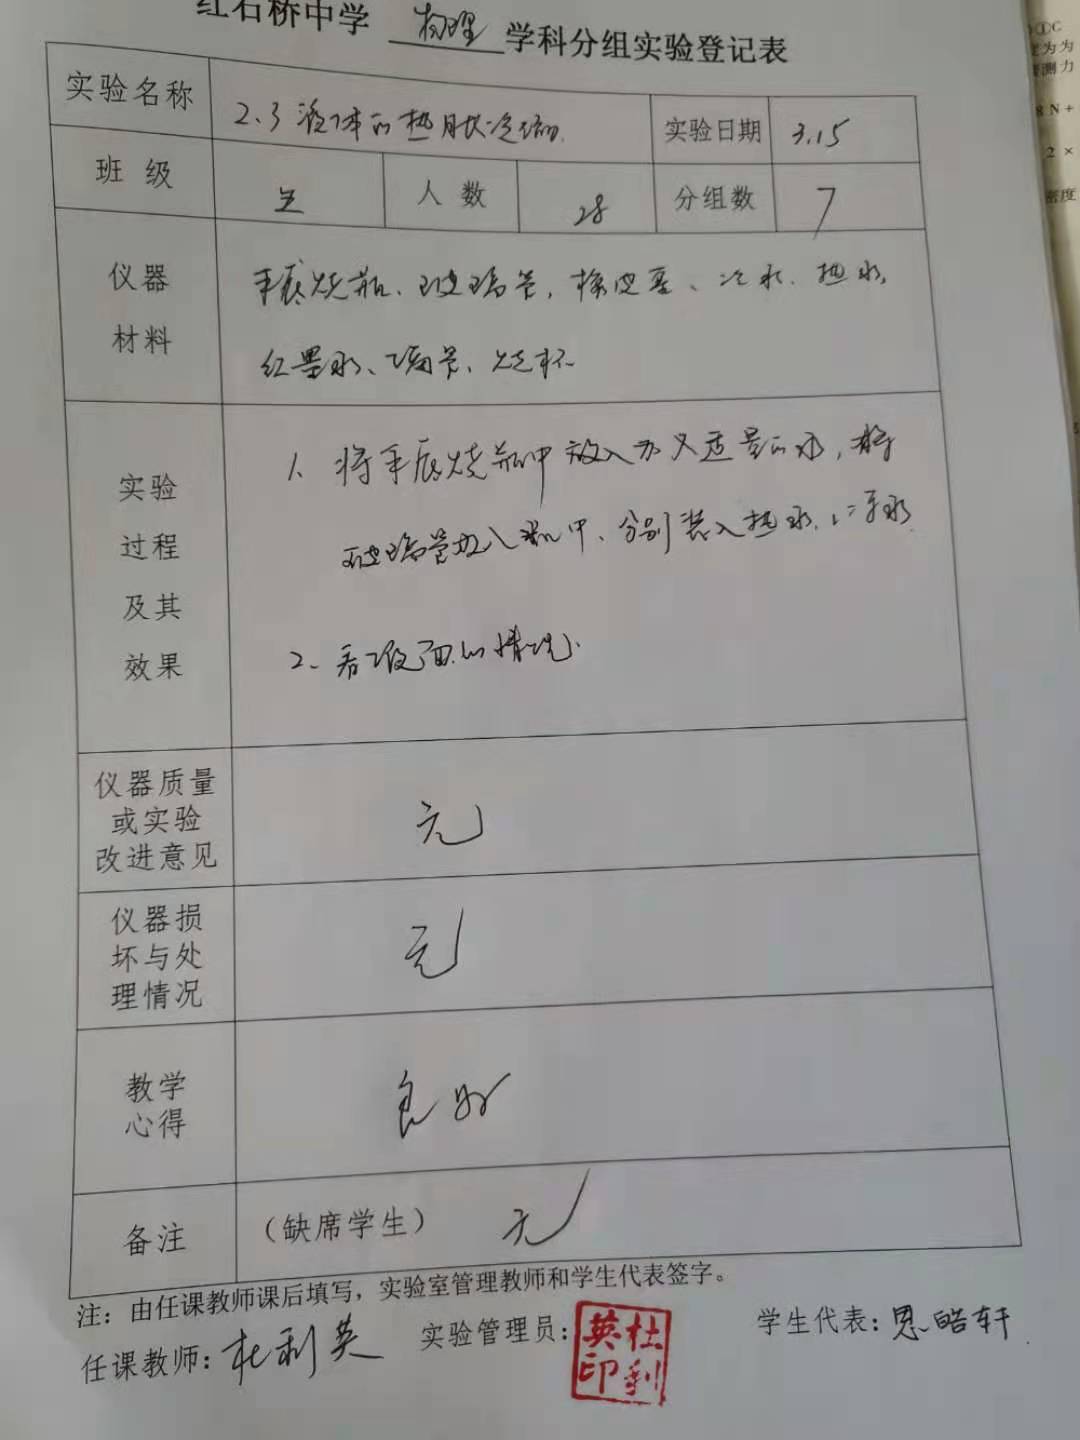 红石桥中学 物理 学科分组实验登记表
实验名称 2.3 液体的热胀冷缩. 实验日期 3.15
班 级 人 数 28 分组数 7
仪器 平底烧瓶、玻璃管，橡皮塞、冷水、热水，
材料 红墨水、滴管、烧杯
实验 1、将平底烧瓶中放入适量的水，将
过程 玻璃管放入瓶中、分别装入热水、冷水
及其
效果 2、看液面的情况.
仪器质量
或实验 无
改进意见
仪器损
坏与处 无
理情况
教学 良好
心得
备注 （缺席学生） 无
注：由任课教师课后填写，实验室管理教师和学生代表签字。
任课教师：杜利英 实验管理员：杜利英印 学生代表：恩皓轩
①C
为为
测力
8 N +
2 ×
密度